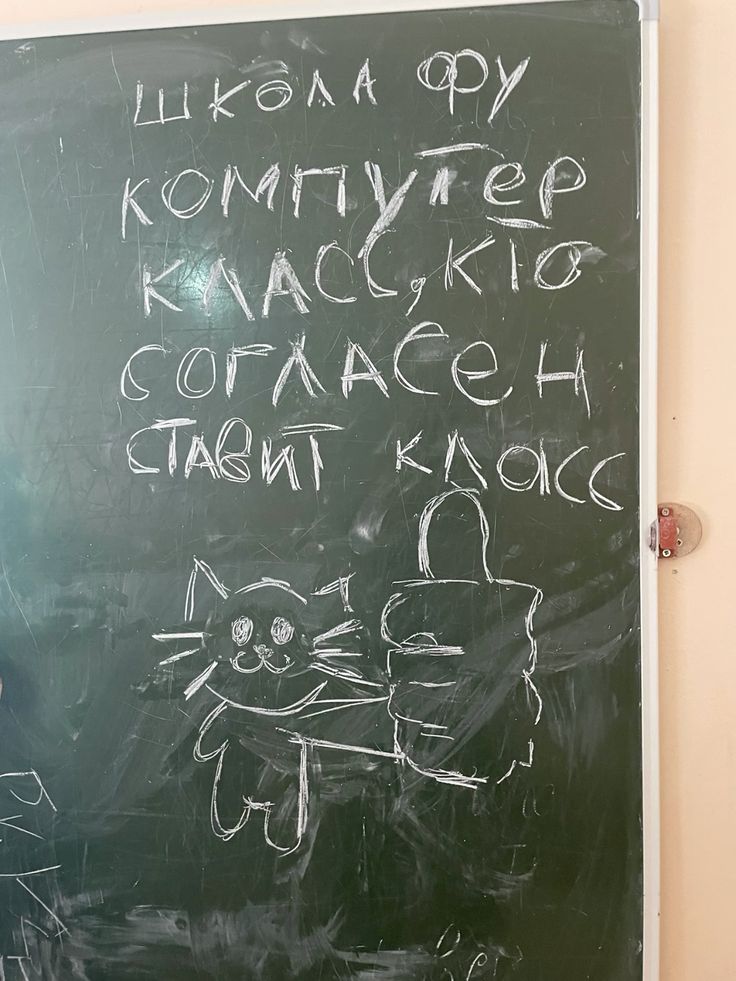 ШКОЛА ФУ
КОМПУТЕР
КЛАСС, КТО
СОГЛАСЕН
СТАВИТ КЛАСС